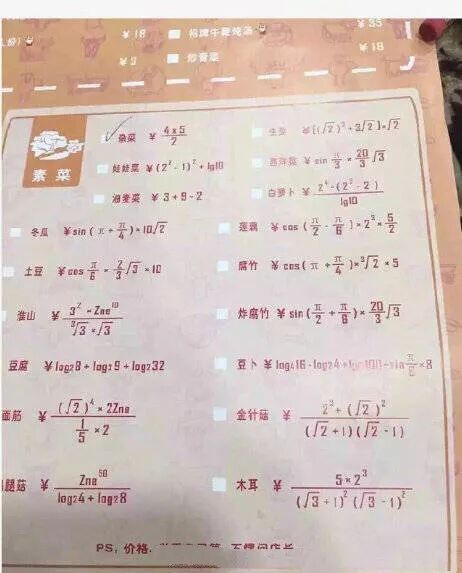 ¥18 招牌牛 炖汤 ¥35
¥9 炒青菜 ¥18
素菜
杂菜 ¥ 4×5/2
生菜 ¥[(√2)³+3√2]×√2
娃娃菜 ¥(2²-1)²+lg10
西洋菜 ¥sin π/3 × 20/3 √3
油麦菜 ¥3+9-2
白萝卜 ¥ 2⁴-(2²-2)/lg10
冬瓜 ¥sin(π+π/4)×10√2
莲藕 ¥cos(π/2-π/6)×2³×5/2
土豆 ¥cos π/6 × 2/3 √3 ×10
腐竹 ¥cos(π+π/4)×³√2×5
淮山 ¥ 3²×Zne¹⁰/³√3×√3
炸腐竹 ¥sin(π/2+π/6)×20/3 √3
豆腐 ¥log₂8+log₂9+log₂32
豆卜 ¥log₄16-log₂4+log100+sin π/6 ×8
面筋 ¥ (√2)⁴×2Zne/(1/5 ×2)
金针菇 ¥ 2³+(√2)²/(√2+1)(√2-1)
腿菇 ¥ Zne⁵⁰/log₂4+log₂8
木耳 ¥ 5×2³/(√3+1)²(√3-1)²
PS, 价格,